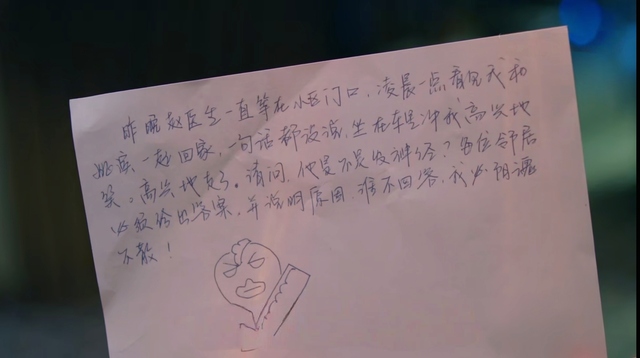 昨晚赵医生一直等在小区门口，凌晨一点看见我和
姚滨一起回家，一句话都没说，坐在车里冲我高兴地
笑。高兴地走了。请问，他是不是发神经？各位邻居
必须给出答案，并说明原因，谁不回答，我必阴魂
不散！